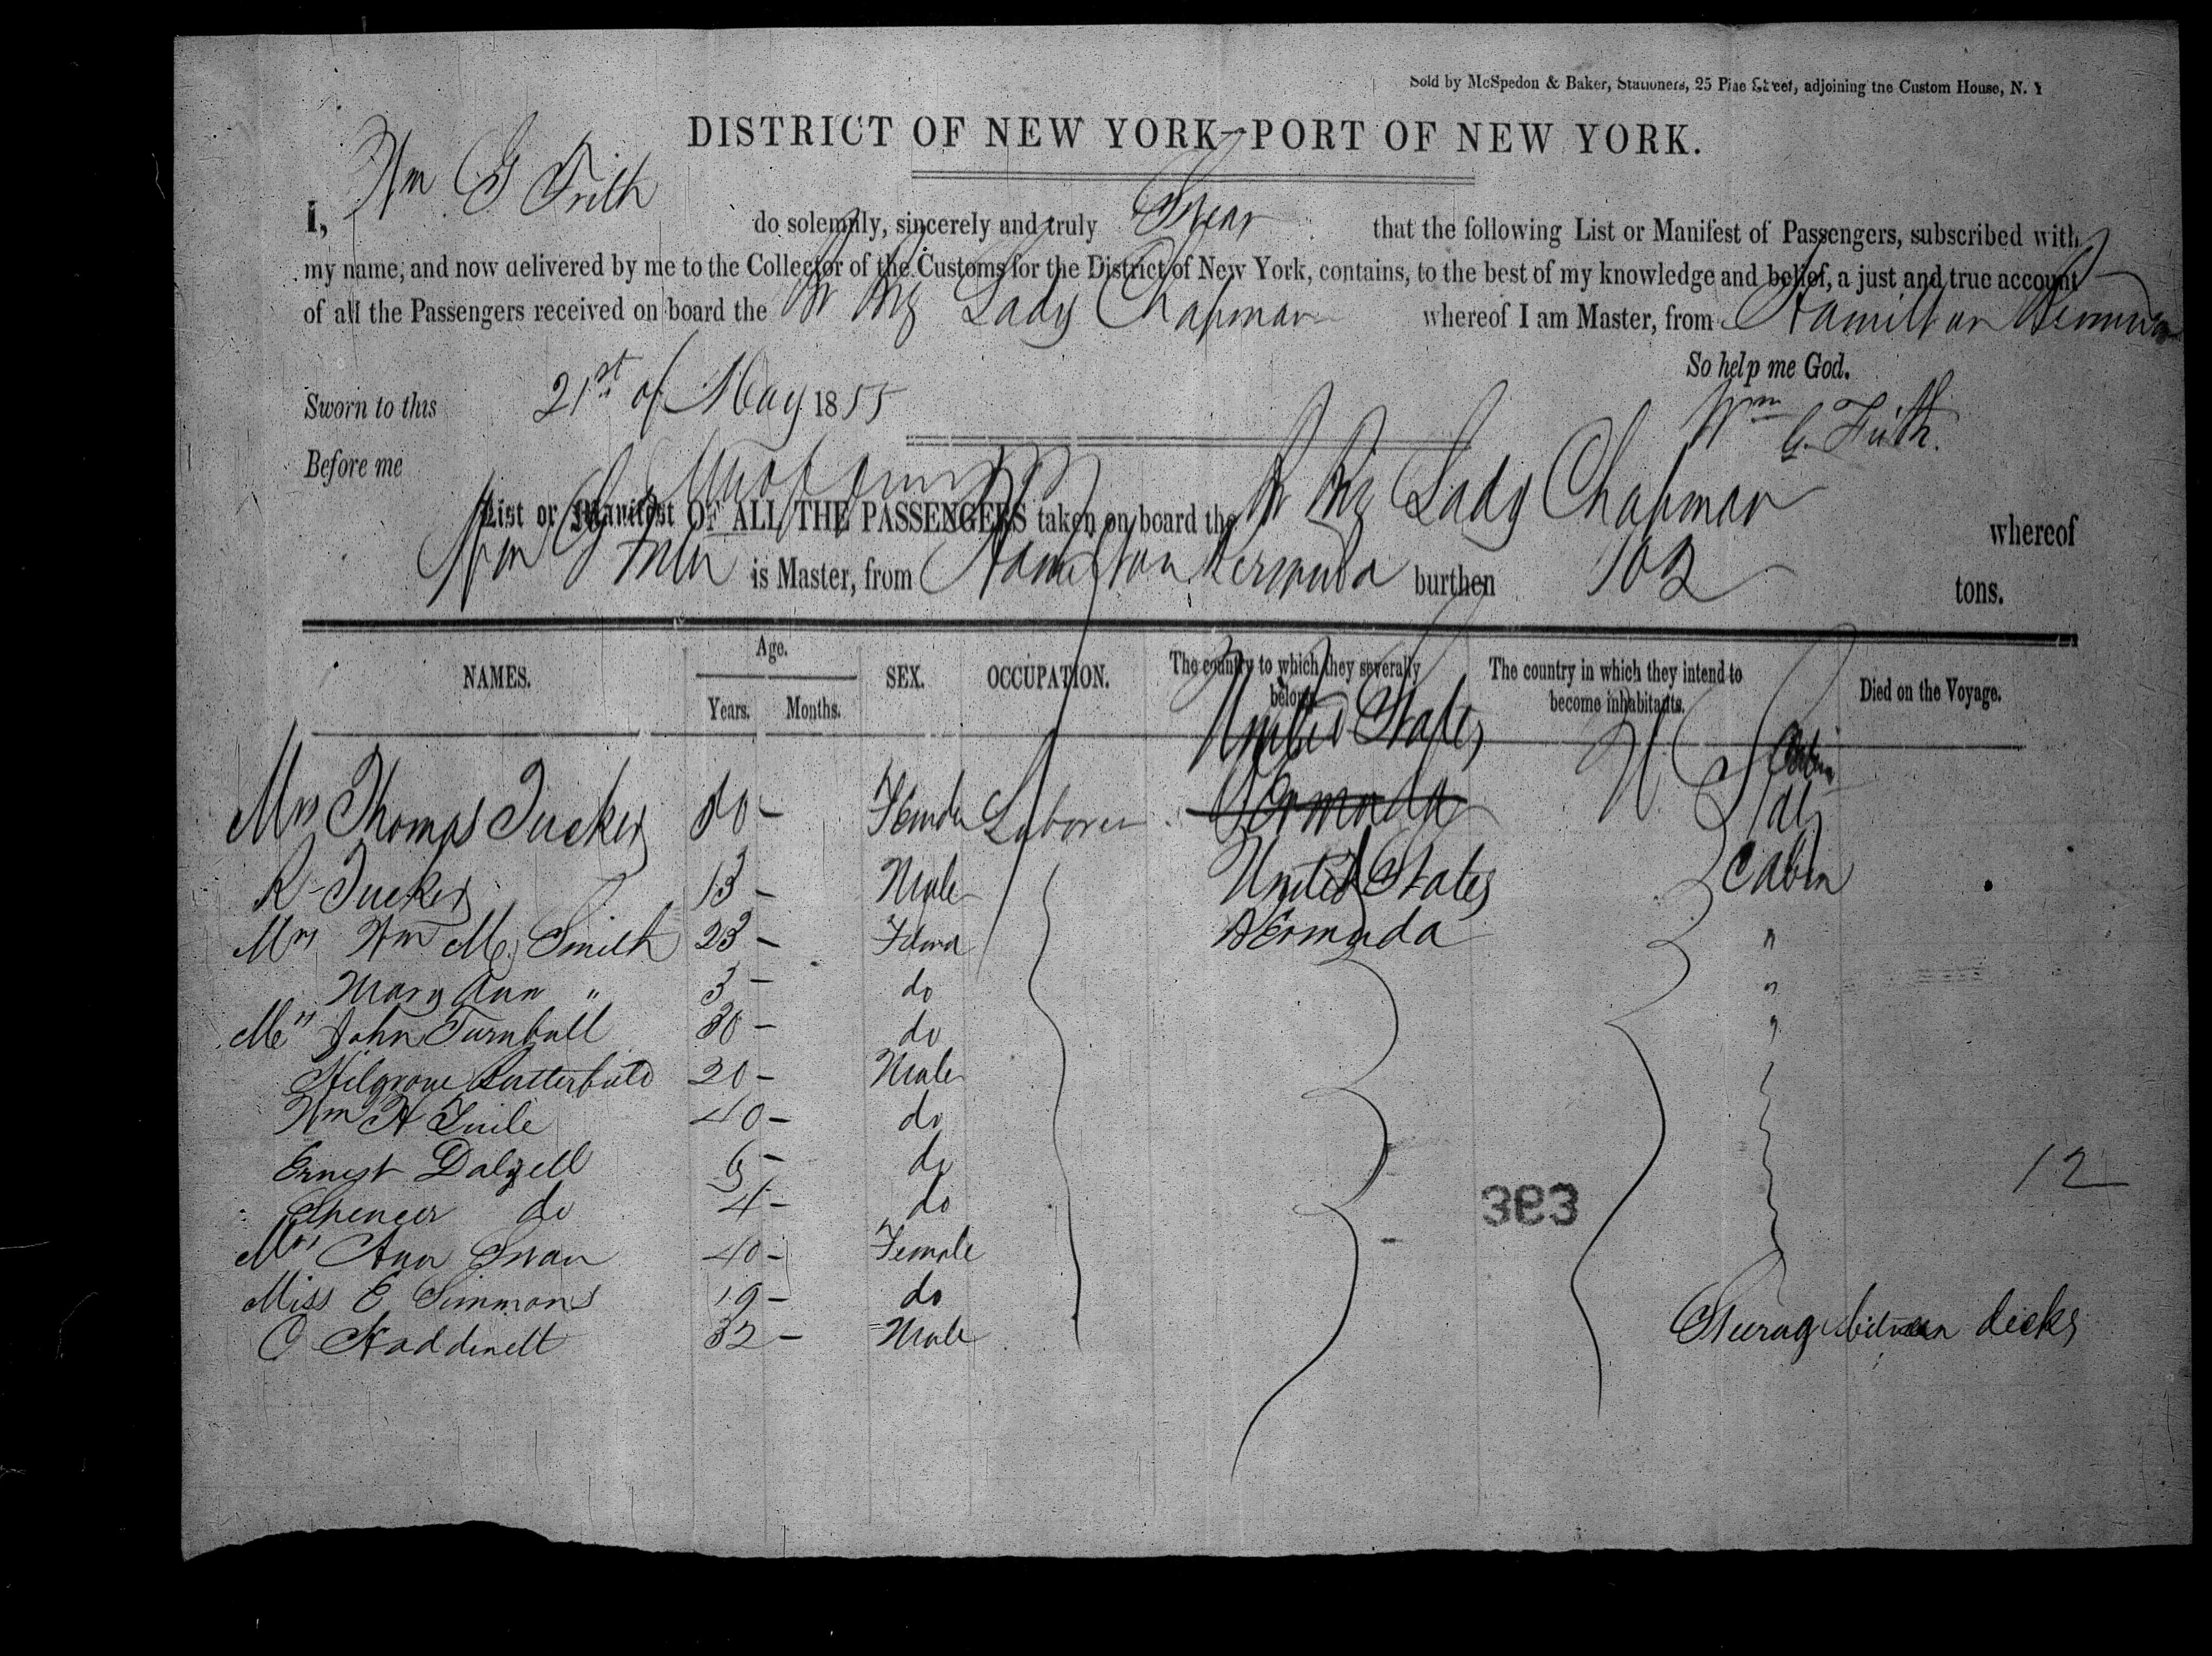 Sold by McSpedon & Baker, Stationers, 25 Pine Street, adjoining the Custom House, N. Y
DISTRICT OF NEW YORK—PORT OF NEW YORK.
I, Wm G Frith do solemnly, sincerely and truly Swear that the following List or Manifest of Passengers, subscribed with
my name, and now delivered by me to the Collector of the Customs for the District of New York, contains, to the best of my knowledge and belief, a just and true account
of all the Passengers received on board the Br Brig Lady Chapman whereof I am Master, from Hamilton Bermuda
So help me God.
Sworn to this 21st of May 1855
Wm G. Frith.
Before me
List or Manifest OF ALL THE PASSENGERS taken on board the Br Brig Lady Chapman whereof
Wm G Frith is Master, from Hamilton Bermuda burthen 102 tons.
NAMES. Age. SEX. OCCUPATION. The country to which they severally belong. The country in which they intend to become inhabitants. Died on the Voyage.
Years. Months.
United States
Mrs Thomas Tucker - Female Laborer Bermuda U. States Cabin
R Tucker 13 - Male United States Cabin
Mrs Wm M. Smith 23 - Bermuda "
Mary Ann " 3 - do "
Mrs John Turnbull 30 - do "
Hilgrove Butterfield 20 - Male
Wm H 40 - do
Ernest Dalzell 6 - do
Spencer do 4 - do
12
383
Mrs Ann Swan 40 - Female
Miss E Simmons 19 - do
O Haddinett 32 - Male
Steerage between decks